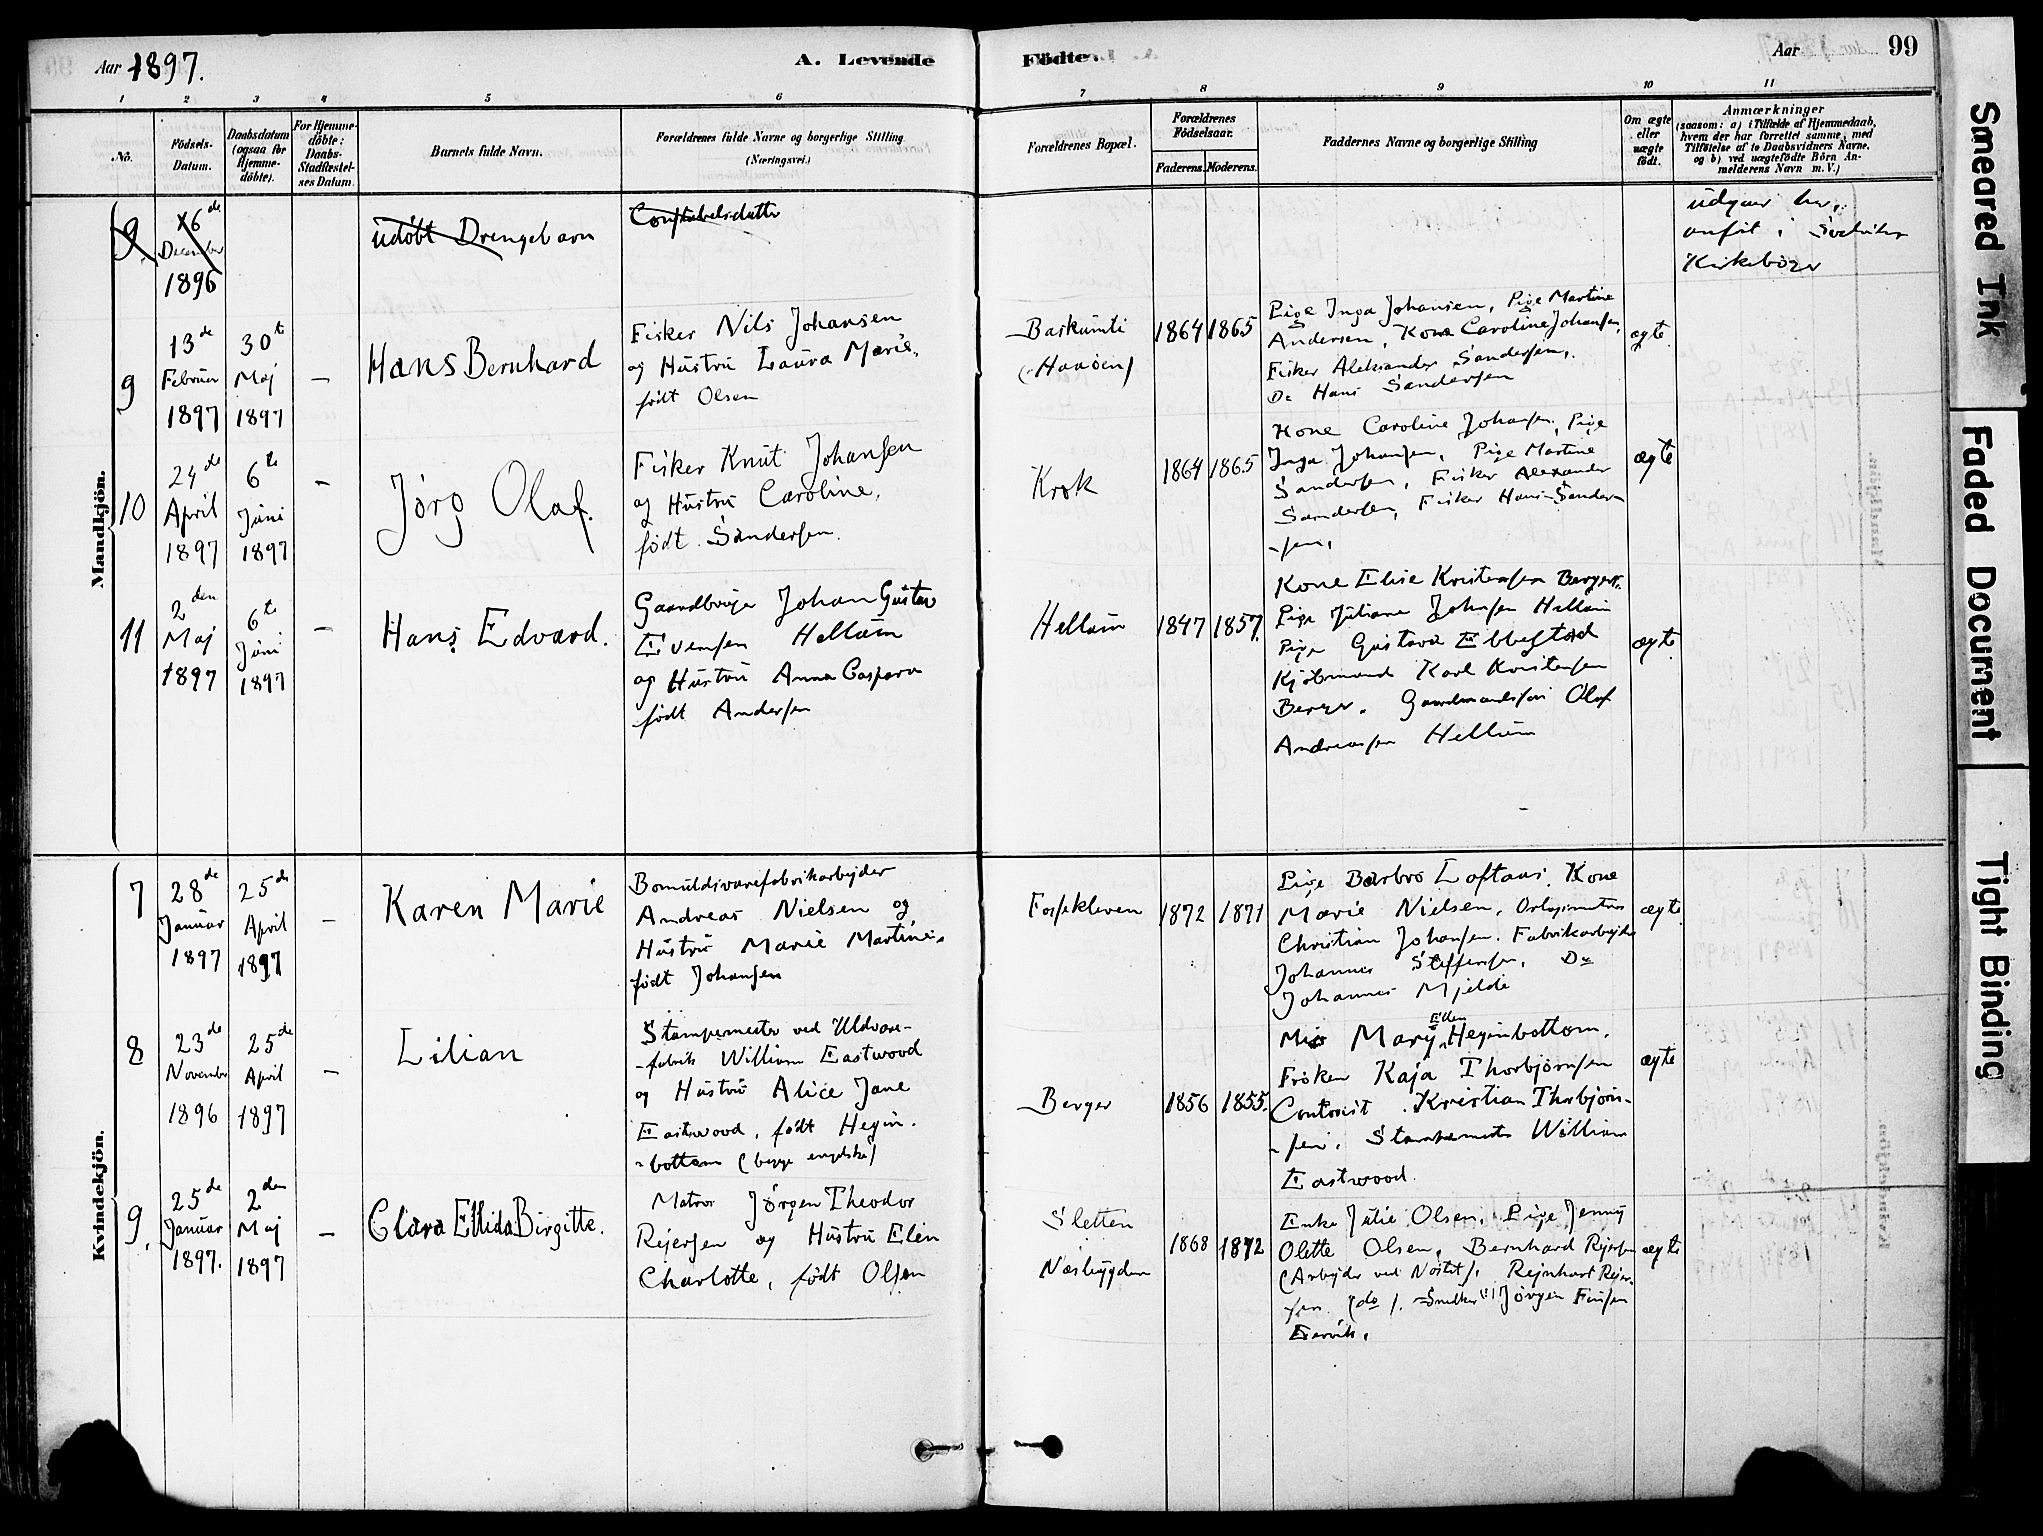 Aar 1897.
A. Levende
Födte.
Aar
99
1 2 3 4 5 6 7 8 9 10 11
No.
Födsels-
Datum.
Daabsdatum
(ogsaa for
Hjemme-
döbte).
For Hjemme-
döbte:
Daabs-
Stadfæstel-
ses Datum.
Barnets fulde Navn.
Forældrenes fulde Navne og borgerlige Stilling
(Næringsvei.)
Forældrenes Bopæl.
Forældrenes
Födselsaar.
Faderens.
Moderens.
Faddernes Navne og borgerlige Stilling
Om ægte
eller
uægte
födt.
Anmærkninger
(saasom: a) i Tilfælde af Hjemmedaab,
hvem der har forrettet samme, med
Tilföielse af to Daabsvidners Navne,
og b) ved uægtefödte Börn An-
melderens Navn m. V.)
Mandkjön.
9
16de
December
1896
udøbt Drengebarn
udgaar her,
anført i
Kirkebøger
9
13de
Februar
1897
30te
Maj
1897
–
Hans Bernhard
Fisker Nils Johansen
og Hustru Laura Marie,
født Olsen
(Haaøen)
1864
1865
Pige Inga Johansen, Pige Martine
Andersen, Kone Caroline Johansen,
Fisker Aleksander Sandersen,
Do Hans Sandersen
ægte
10
24de
April
1897
6te
Juni
1897
–
Jørg Olaf.
Fisker Knut Johansen
og Hustru Caroline,
født Sandersen.
Krok
1864
1865
Kone Caroline Johansen, Pige
Inga Johansen, Pige Martine
Sandersen, Fisker Alexander
Sandersen, Fisker Hans Sander-
-sen,
ægte
11
2den
Maj
1897
6te
Juni
1897
–
Hans Edvard.
Gaardbruger Johan Gustav
Evensen Hellum
og Hustru Anna Caspara
født Andersen
Hellum
1847
1857
Kone Elise Kristensen Berger.
Pige Juliane Johnsen Hellum
Pige Gustava Ebbestad
Kjøbmand Karl Kristensen
Berger. Gaardmandssøn Olaf
Andreassen Hellum
ægte
Kvindekjön.
7
28de
Januar
1897
25de
April
1897
–
Karen Marie
Bomuldsvarefabrikarbejder
Andreas Nielsen og
Hustru Marie Martine,
født Johansen
Fossekleven
1872
1871
Pige Barbro Loftaas, Kone
Marie Nielsen,
Christian Johansen. Fabrikarbejder
Johannes Steffensen, Do
Johannes Mjelde
ægte
8
23de
November
1896
25de
April
1897
–
Lilian
Stampemester ved Uldvare-
-fabrik William Eastwood
og Hustru Alice Jane
Eastwood, født Hegin-
-bottom (begge engelske)
Berger
1856
1855.
Miss Mary Ellen Heginbottom,
Frøken Kaja Thorbjørnsen
Contorist Kristian Thorbjørn-
-sen, Stampemester William
Eastwood.
ægte
9.
25de
Januar
1897.
2den
Maj
1897
–
Clara Ellida Birgitte.
Matros Jørgen Theodor
Rejersen og Hustru Elen
Charlotte, født Olsen
Sletten
Næsbygden
1868
1872
Enke Julie Olsen, Pige Jenny
Olette Olsen, Bernhard Rejersen
(Arbejder ved Nøstet), Rejnhart Rejer-
sen (do), Snedker Jørgen Finsen
ægte
Smeared Ink
Faded Document
Tight Binding